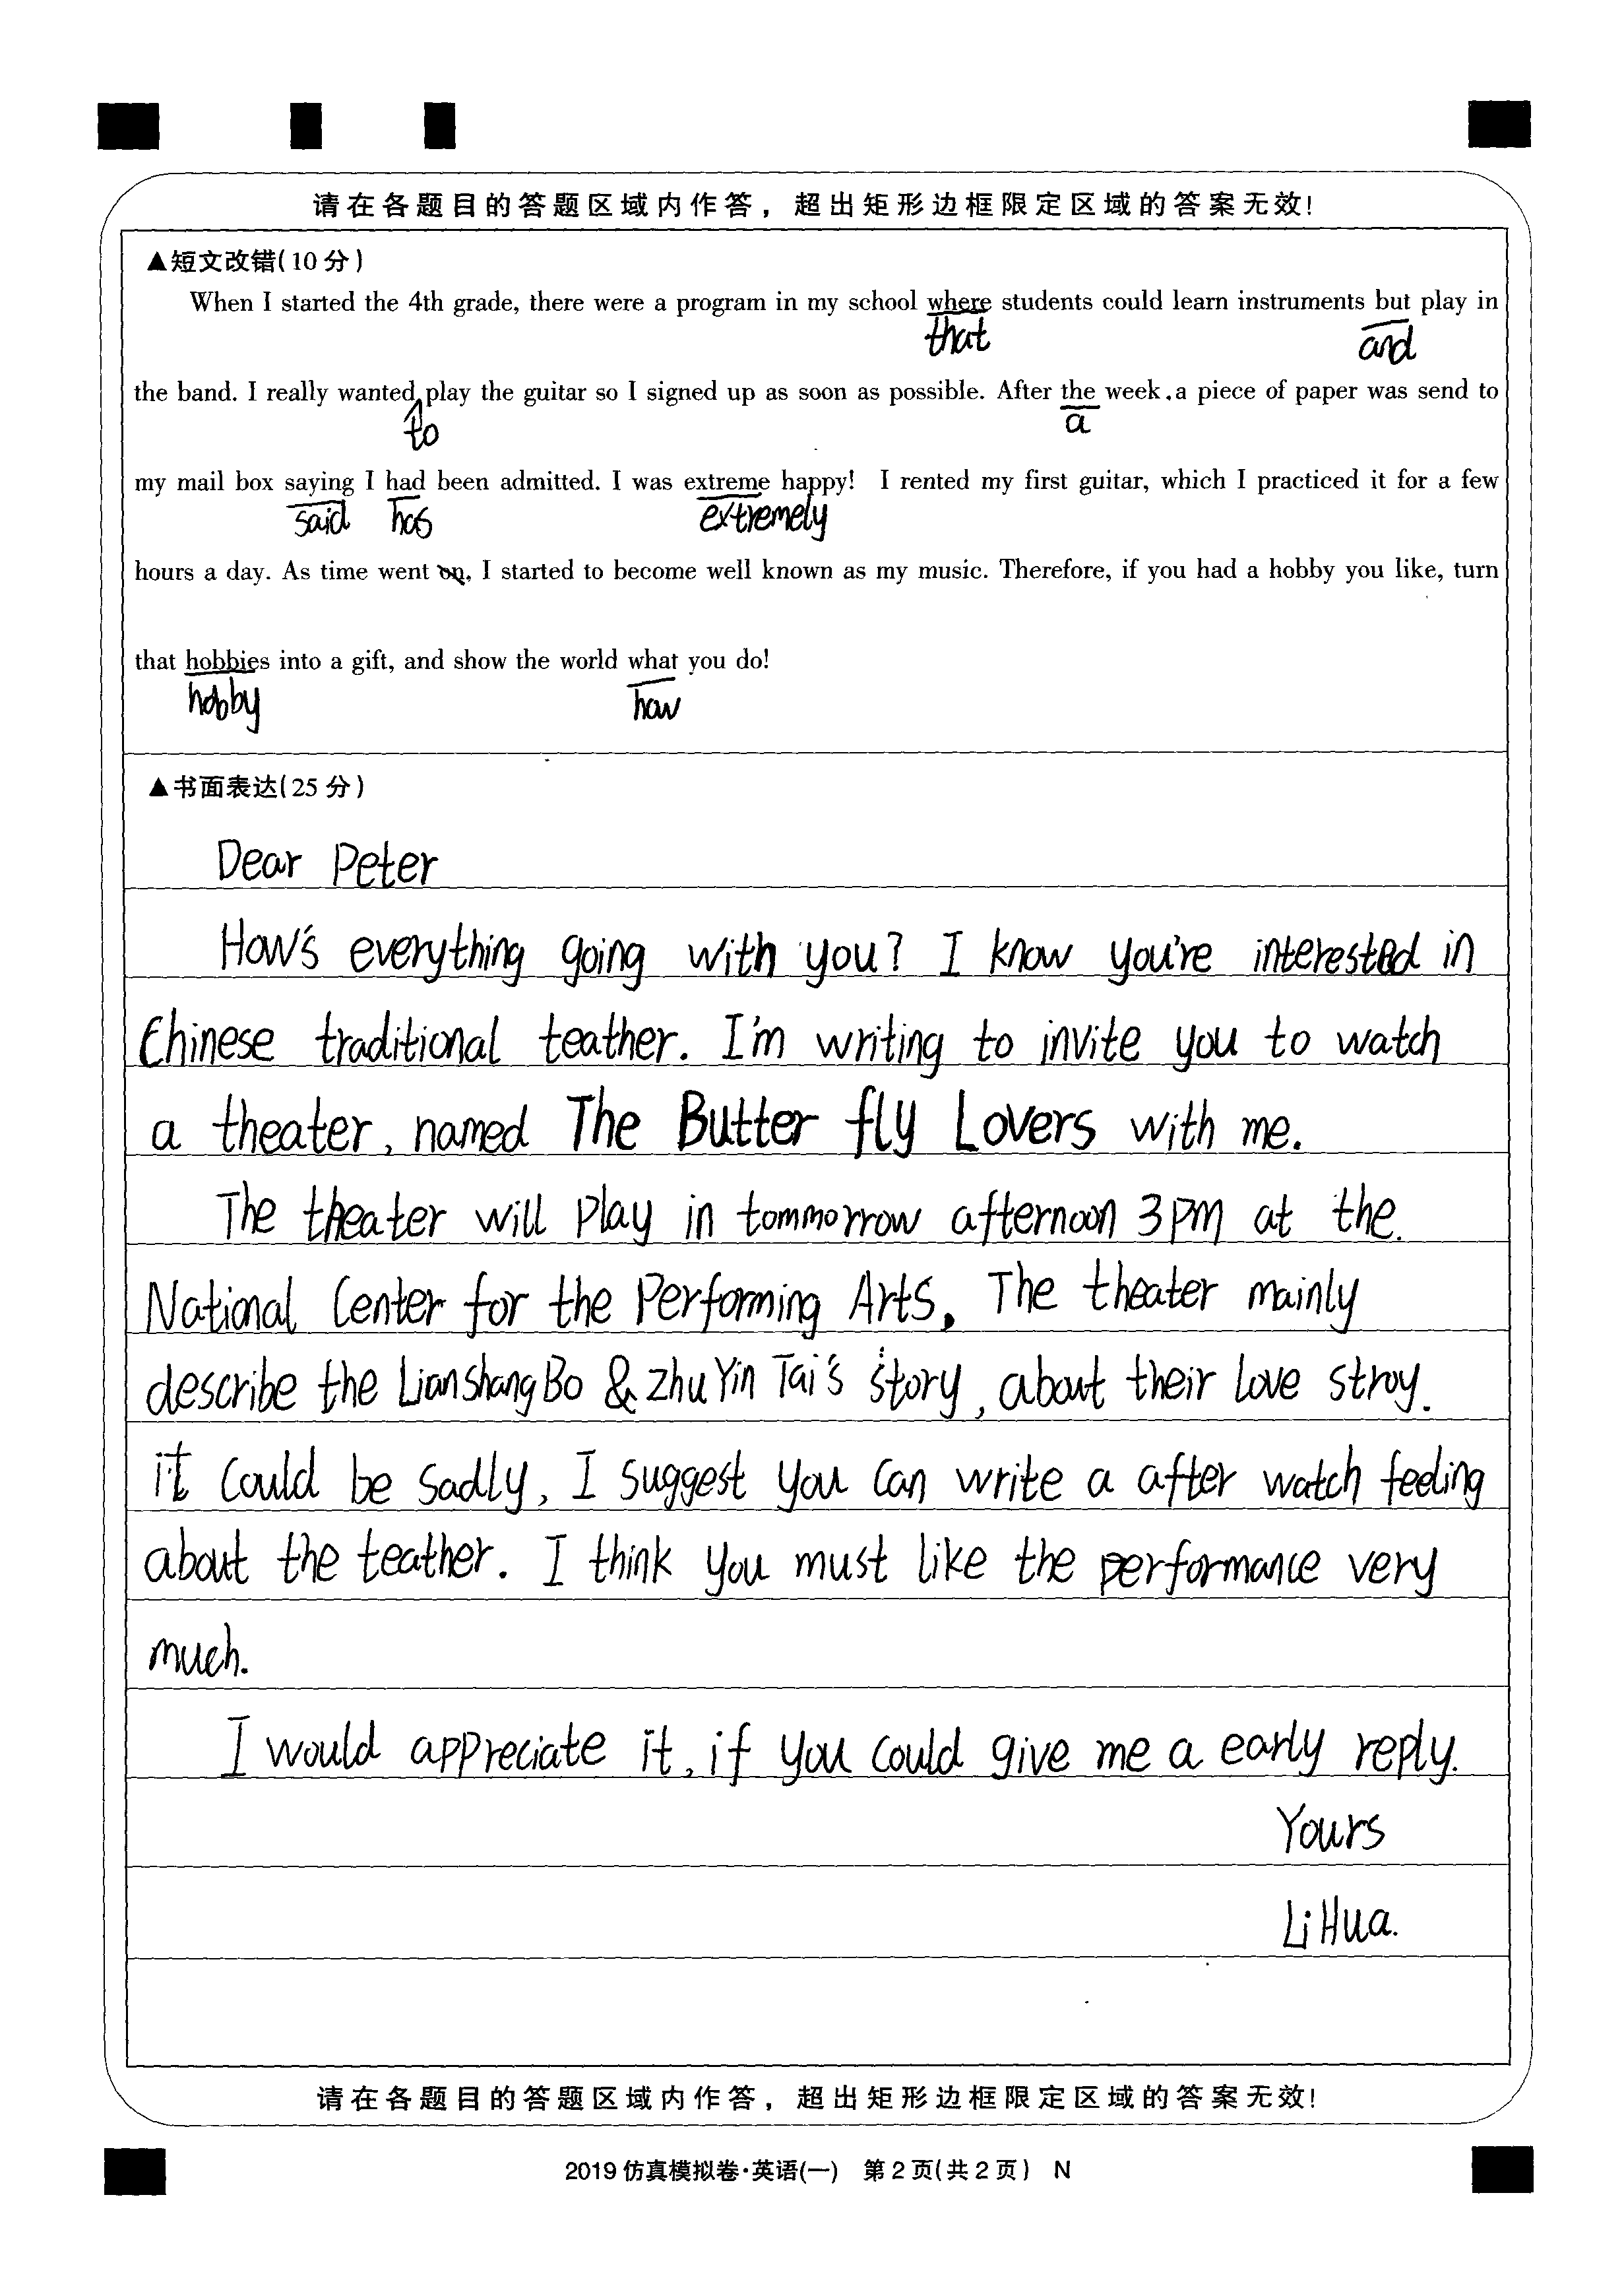 请在各题目的答题区域内作答，超出矩形边框限定区域的答案无效!
▲短文改错(10分)
When I started the 4th grade, there were a program in my school where students could learn instruments but play in
that and
the band. I really wanted play the guitar so I signed up as soon as possible. After the week, a piece of paper was send to
to a
my mail box saying I had been admitted. I was extreme happy! I rented my first guitar, which I practiced it for a few
said has extremely
hours a day. As time went on, I started to become well known as my music. Therefore, if you had a hobby you like, turn
that hobbies into a gift, and show the world what you do!
hobby how
▲书面表达(25分)
Dear Peter
How's everything going with you? I know you're interested in
Chinese traditional teather. I'm writing to invite you to watch
a theater, named The Butter fly Lovers with me.
The theater will play in tommorrow afternoon 3PM at the.
National Center for the Performing Arts. The theater mainly
describe the LianshangBo & zhuYin Tai's story, about their love stroy.
it could be sadly, I suggest you can write a after watch feeling
about the teather. I think you must like the performance very
much.
I would appreciate it, if you could give me a early reply.
Yours
LiHua.
请在各题目的答题区域内作答，超出矩形边框限定区域的答案无效!
2019仿真模拟卷·英语(一) 第2页(共2页) N